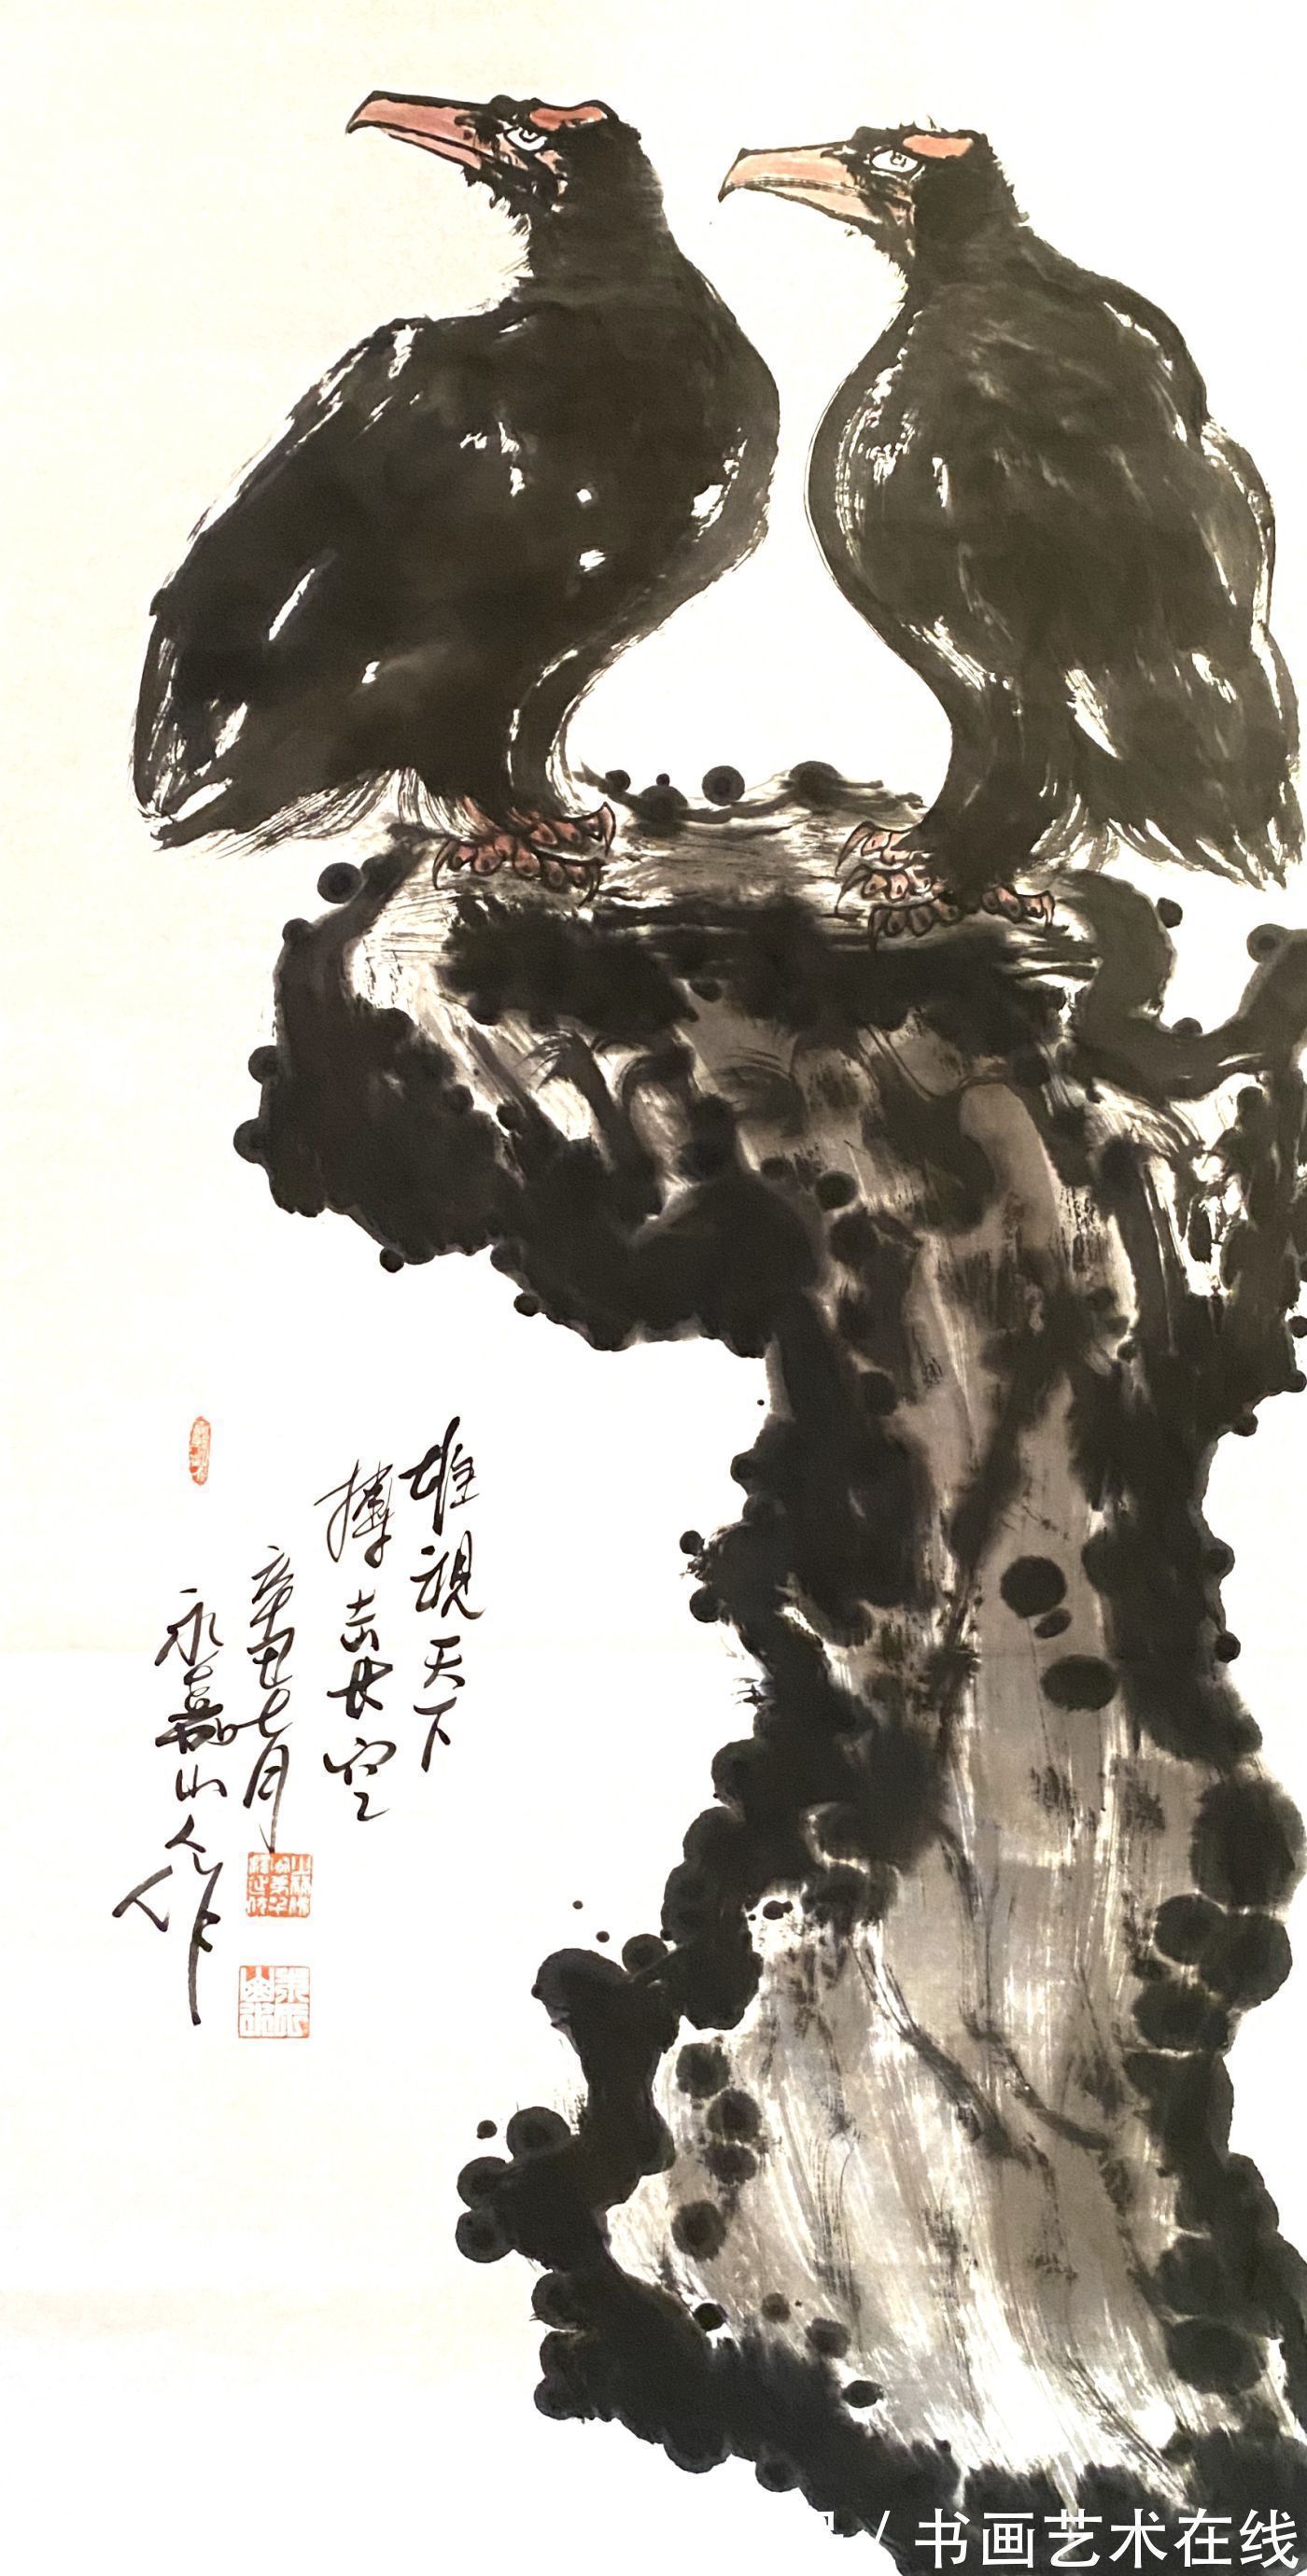 雄視天下
搏击长空
辛丑七月
永嘉山人作
/ 书画艺术在线